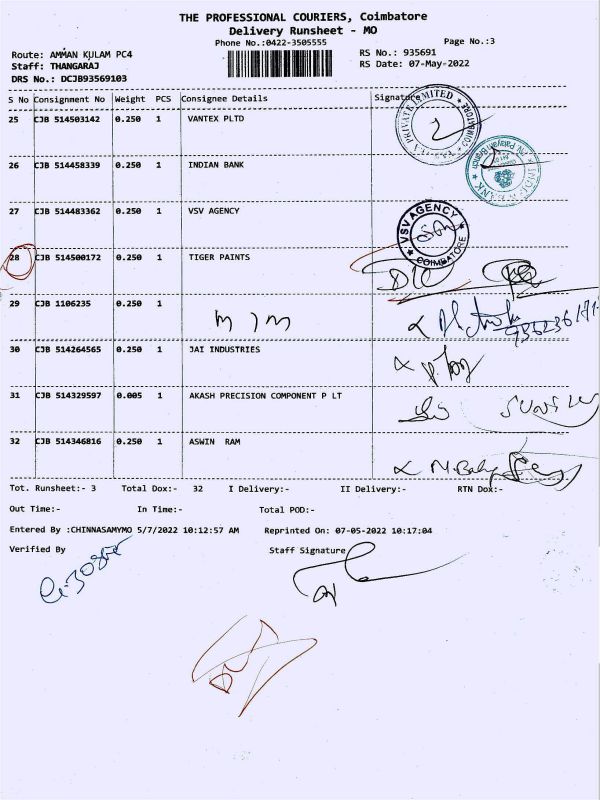 THE PROFESSIONAL COURIERS, Coimbatore
Delivery Runsheet - MO
Phone No.:0422-3505555
Page No.:3
Route: AMMAN KULAM PC4
RS No.: 935691
Staff: THANGARAJ
RS Date: 07-May-2022
DRS No.: DCJB93569103
S No Consignment No Weight PCS Consignee Details Signature
25 CJB 514503142 0.250 1 VANTEX PLTD
PRIVATE LIMITED COIMBATORE
26 CJB 514458339 0.250 1 INDIAN BANK
27 CJB 514483362 0.250 1 VSV AGENCY
VSV AGENCY COIMBATORE
28 CJB 514500172 0.250 1 TIGER PAINTS
29 CJB 1106235 0.250 1
30 CJB 514264565 0.250 1 JAI INDUSTRIES
31 CJB 514329597 0.005 1 AKASH PRECISION COMPONENT P LT
32 CJB 514346816 0.250 1 ASWIN RAM
Tot. Runsheet:- 3 Total Dox:- 32 I Delivery:- II Delivery:- RTN Dox:-
Out Time:- In Time:- Total POD:-
Entered By :CHINNASAMYMO 5/7/2022 10:12:57 AM Reprinted On: 07-05-2022 10:17:04
Verified By Staff Signature